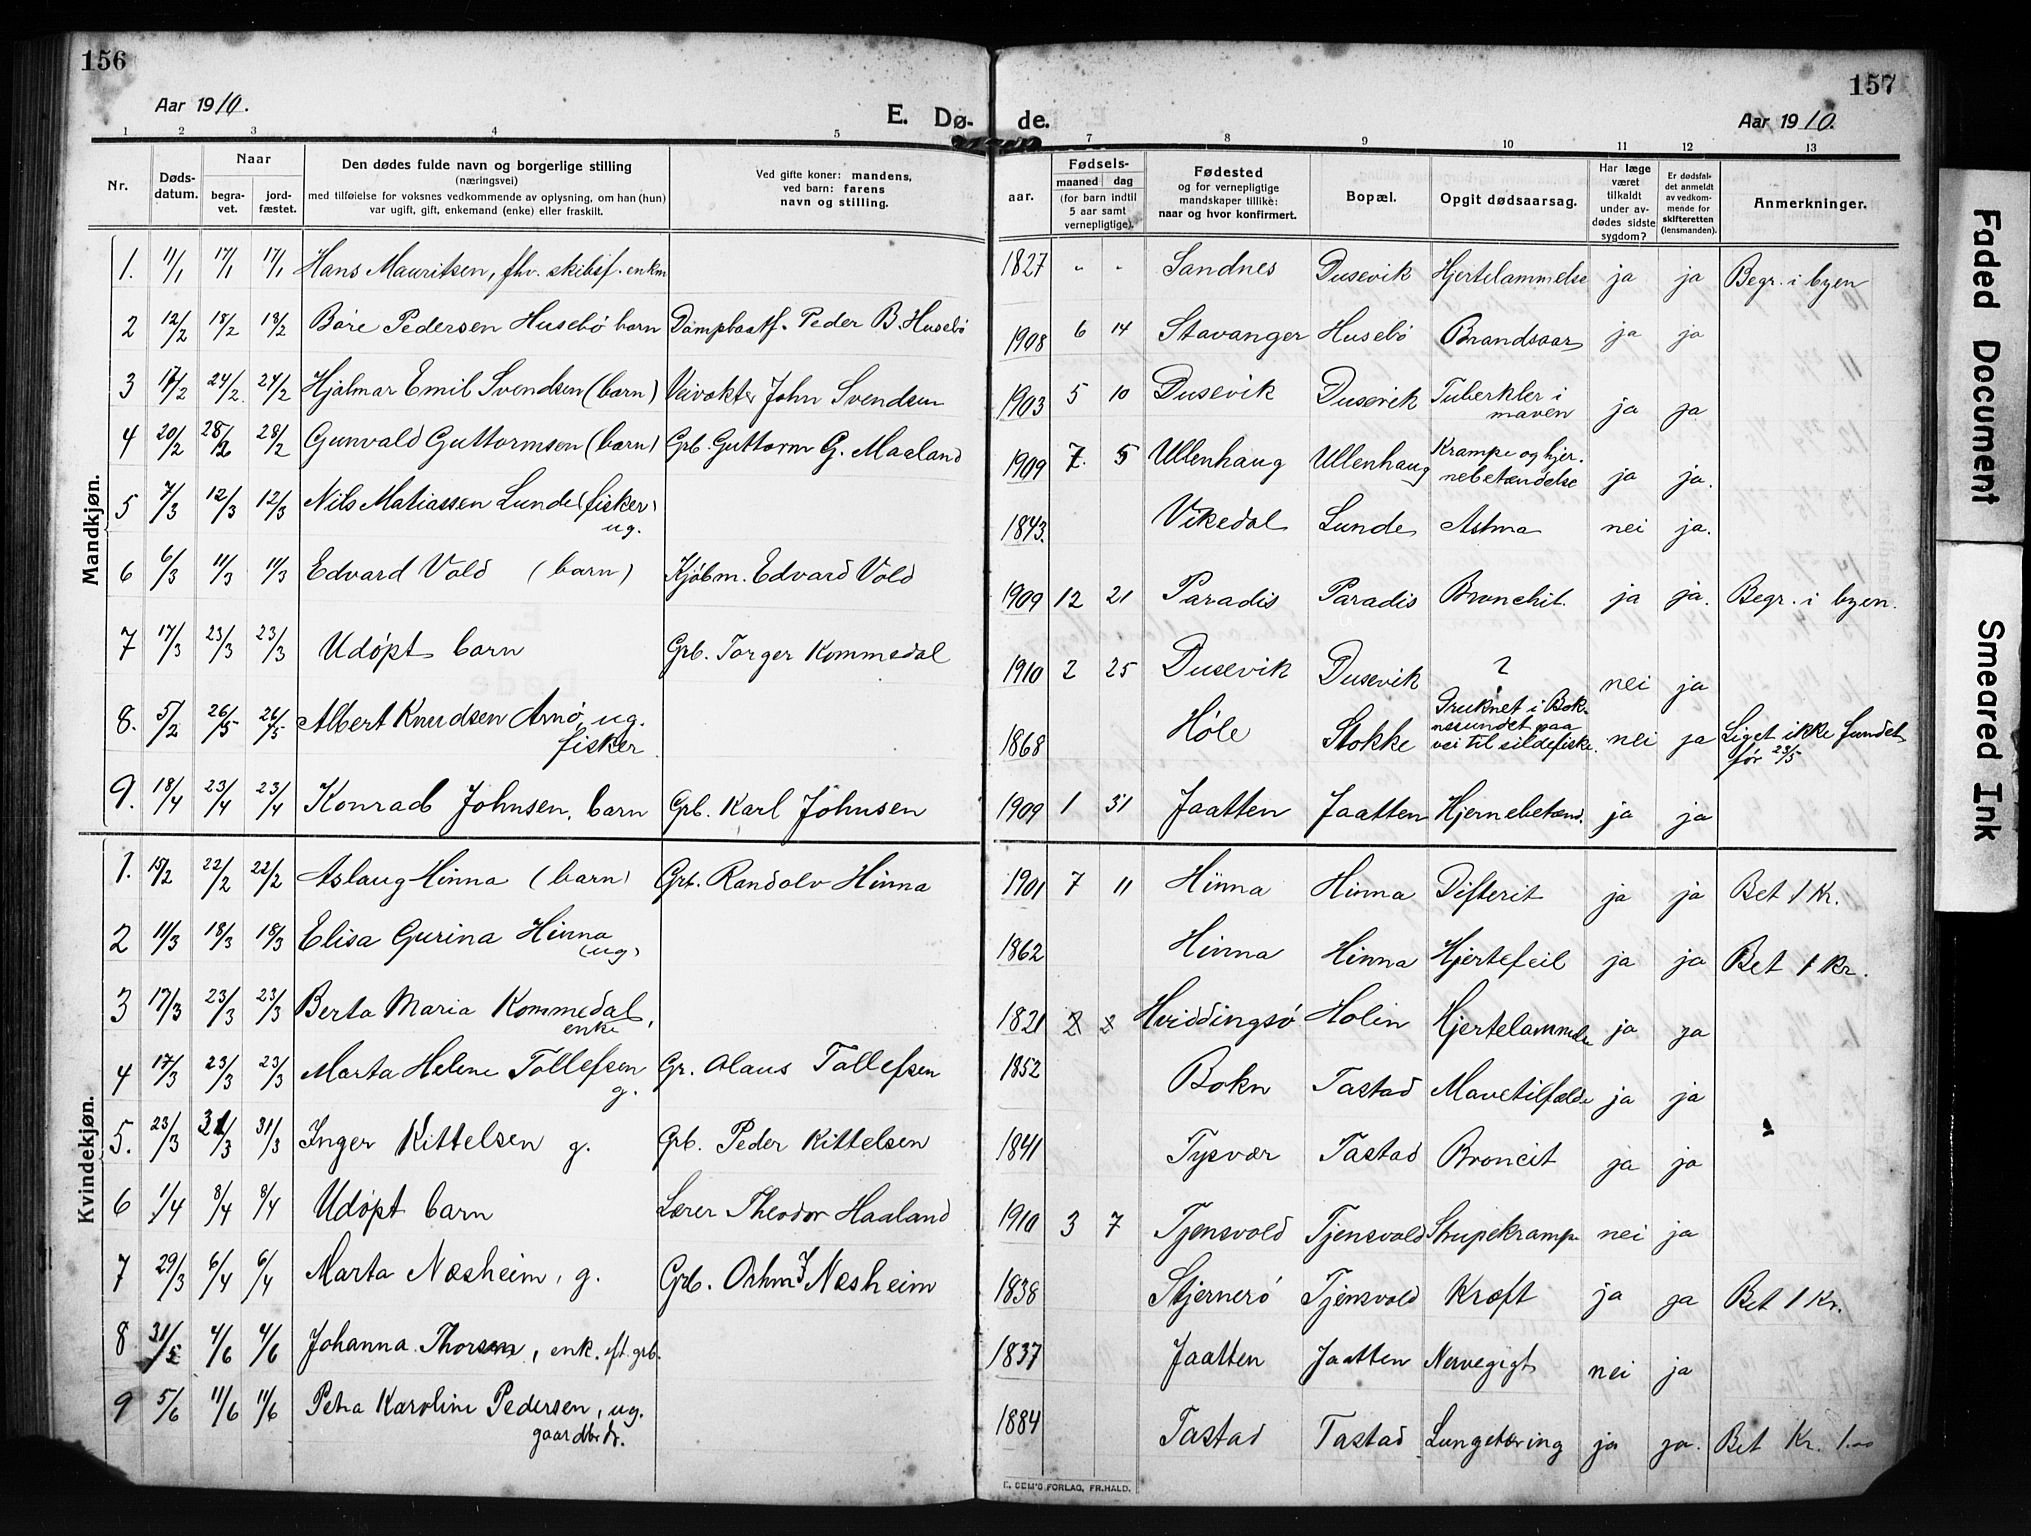 156
157
Aar 1910.
E. Dø-
de.
Aar 1910.
1 2 3 4 5 7 8 9 10 11 12 13
Nr.
Døds-
datum.
Naar
begra-
vet.
jord-
fæstet.
Den dødes fulde navn og borgerlige stilling
(næringsvei)
med tilføielse for voksnes vedkommende av oplysning, om han (hun)
var ugift, gift, enkemand (enke) eller fraskilt.
Ved gifte koner: mandens,
ved barn: farens
navn og stilling.
Fødsels-
aar.
maaned dag
(for barn indtil
5 aar samt
vernepligtige).
Fødested
og for vernepligtige
mandskaper tillike:
naar og hvor konfirmert.
Bopæl.
Opgit dødsaarsag.
Har læge
været
tilkaldt
under av-
dødes sidste
sygdom?
Er dødsfal-
det anmeldt
av vedkom-
mende for
skifteretten
(lensmanden).
Anmerkninger.
Mandkjøn.
1. 11/1 17/1 17/1 Hans Mauritsen, fhv. skibsf. enkm 1827 " " Sandnes Dusevik Hjertelammelse ja ja Begr. i byen
2 12/2 18/2 18/2 Båre Pedersen Husebö barn Dampbaatf. Peder B. Husebö 1908 6 14 Stavanger Husebö Brandsaar ja ja
3 17/2 24/2 24/2 Hjalmar Emil Svendsen (barn) Veivokter John Svendsen 1903 5 10 Dusevik Dusevik Tuberkler i
maven ja ja
4 20/2 28/2 28/2 Gunvald Guttormsen (barn) Grb. Guttorm G. Maaland 1909 7. 5 Ullenhaug Ullenhaug Krampe og hjer-
nebetændelse ja ja.
5 7/3 12/3 12/3 Nils Matiassen Lunde (fisker)
ug. 1843. Vikedal Lunde Astma nei ja.
6 6/3 11/3 11/3 Edvard Vold (barn) Kjöbm. Edvard Vold 1909 12 21 Paradis Paradis Bronchit. ja ja. Begr. i byen.
7 17/3 23/3 23/3 Udöpt barn Grb. Torger Kommedal 1910 2 25 Dusevik Dusevik ? nei ja
8. 5/2 26/5 26/5 Albert Knudsen Arnö, ug.
fisker. 1868 Höle Stokke Druknet i Bok-
nssundet paa
vei til sildefiske. nei ja Liget ikke fundet
før 23/5
9. 18/4 23/4 23/4 Konrad Johnsen, barn Grb. Karl Johnsen 1909 1 31 Jaatten Jaatten Hjernebetænd. ja ja
Kvindekjøn.
1. 15/2 22/2 22/2 Aslaug Hinna (barn) Grb. Randolv Hinna 1901 7 11 Hinna Hinna Difterit ja ja Bet 1 Kr.
2 11/3 18/3 18/3 Elisa Gurina Hinna
(ug) 1862 Hinna Hinna Hjertefeil ja ja Bet 1 Kr.
3 17/3 23/3 23/3 Berta Maria Kommedal,
enke 1821 2 2 Hviddingsö Holen Hjertelammelse ja ja
4 17/3 23/3 23/3 Marta Helene Tollefsen
g. Gr. Olaus Tollefsen 1852 Bokn Tastad Mavetilfælde ja ja
5. 23/3 31/3 31/3 Inger Kittelsen g. Grb. Peder Kittelsen 1841 Tysvær Tastad Broncit ja ja
6 1/4 8/4 8/4 Udöpt barn Lærer Theodor Haaland 1910 3 7 Tjensvold Tjensvold Strupekrampe nei ja
7 29/3 6/4 6/4 Marta Næsheim, g. Grb. Næsheim 1838 Stjernerö Tjensvold Kræft ja ja Bet 1 Kr.
8 31/5 4/6 4/6 Johanna Thorsen, enk. eft. grb. 1837 Jaatten Jaatten Nervegigt nei ja
9 5/6 11/6 11/6 Petra Karoline Pedersen, ug.
gaardbr. 1884 Tastad Tastad Lungetæring ja ja. Bet Kr. 1.00
E. SEM'S FORLAG, FR.HALD.
Faded Document
Smeared Ink